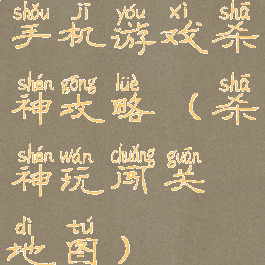 shǒu jī yóu xì shā
手机游戏杀
shén gōng lüè shā
神攻略（杀
shén wán chuǎng guān
神玩闯关
dì tú
地图）